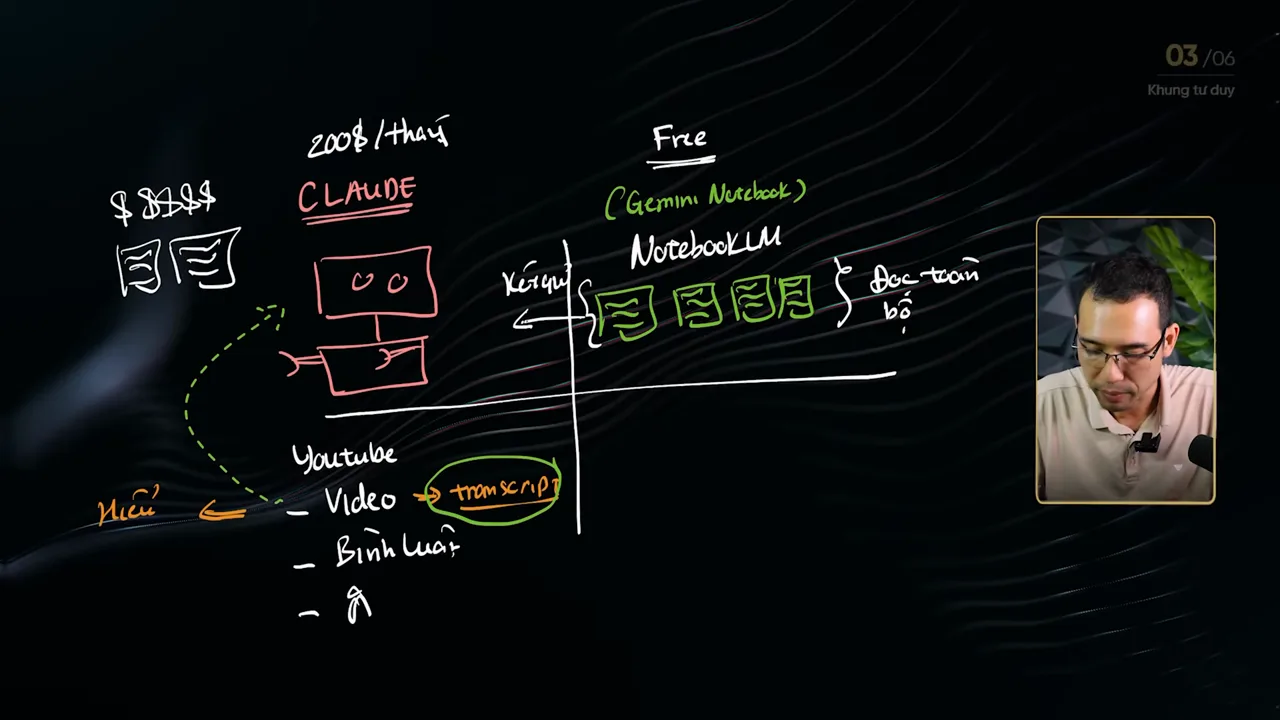 03 /06
Khung tư duy
200$/tháng
CLAUDE
$ $$$$
Free
(Gemini Notebook)
NotebookLM
Kết quả
Đọc toàn
bộ
Youtube
- Video → transcript
Hiểu
- Bình luận
-